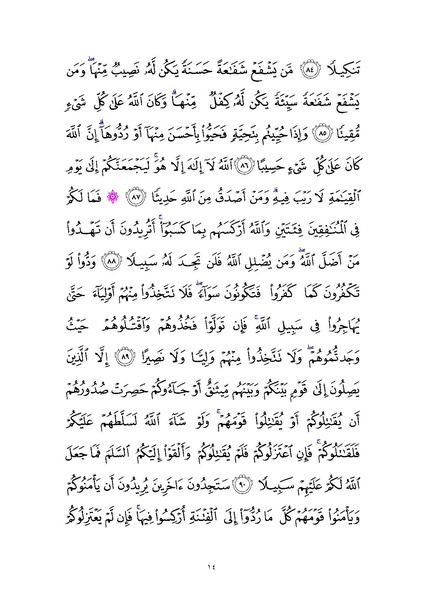 تَنكِيلًا ﴿٨٤﴾ مَّن يَشْفَعْ شَفَٰعَةً حَسَنَةً يَكُن لَّهُۥ نَصِيبٌ مِّنْهَا ۖ وَمَن
يَشْفَعْ شَفَٰعَةً سَيِّئَةً يَكُن لَّهُۥ كِفْلٌ مِّنْهَا ۗ وَكَانَ ٱللَّهُ عَلَىٰ كُلِّ شَىْءٍ
مُّقِيتًا ﴿٨٥﴾ وَإِذَا حُيِّيتُم بِتَحِيَّةٍ فَحَيُّوا۟ بِأَحْسَنَ مِنْهَآ أَوْ رُدُّوهَآ ۗ إِنَّ ٱللَّهَ
كَانَ عَلَىٰ كُلِّ شَىْءٍ حَسِيبًا ﴿٨٦﴾ ٱللَّهُ لَآ إِلَٰهَ إِلَّا هُوَ ۚ لَيَجْمَعَنَّكُمْ إِلَىٰ يَوْمِ
ٱلْقِيَٰمَةِ لَا رَيْبَ فِيهِ ۗ وَمَنْ أَصْدَقُ مِنَ ٱللَّهِ حَدِيثًا ﴿٨٧﴾ ۞ فَمَا لَكُمْ
فِى ٱلْمُنَٰفِقِينَ فِئَتَيْنِ وَٱللَّهُ أَرْكَسَهُم بِمَا كَسَبُوٓا۟ ۚ أَتُرِيدُونَ أَن تَهْدُوا۟
مَنْ أَضَلَّ ٱللَّهُ ۖ وَمَن يُضْلِلِ ٱللَّهُ فَلَن تَجِدَ لَهُۥ سَبِيلًا ﴿٨٨﴾ وَدُّوا۟ لَوْ
تَكْفُرُونَ كَمَا كَفَرُوا۟ فَتَكُونُونَ سَوَآءً ۖ فَلَا تَتَّخِذُوا۟ مِنْهُمْ أَوْلِيَآءَ حَتَّىٰ
يُهَاجِرُوا۟ فِى سَبِيلِ ٱللَّهِ ۚ فَإِن تَوَلَّوْا۟ فَخُذُوهُمْ وَٱقْتُلُوهُمْ حَيْثُ
وَجَدتُّمُوهُمْ ۖ وَلَا تَتَّخِذُوا۟ مِنْهُمْ وَلِيًّا وَلَا نَصِيرًا ﴿٨٩﴾ إِلَّا ٱلَّذِينَ
يَصِلُونَ إِلَىٰ قَوْمٍۭ بَيْنَكُمْ وَبَيْنَهُم مِّيثَٰقٌ أَوْ جَآءُوكُمْ حَصِرَتْ صُدُورُهُمْ
أَن يُقَٰتِلُوكُمْ أَوْ يُقَٰتِلُوا۟ قَوْمَهُمْ ۚ وَلَوْ شَآءَ ٱللَّهُ لَسَلَّطَهُمْ عَلَيْكُمْ
فَلَقَٰتَلُوكُمْ ۚ فَإِنِ ٱعْتَزَلُوكُمْ فَلَمْ يُقَٰتِلُوكُمْ وَأَلْقَوْا۟ إِلَيْكُمُ ٱلسَّلَمَ فَمَا جَعَلَ
ٱللَّهُ لَكُمْ عَلَيْهِمْ سَبِيلًا ﴿٩٠﴾ سَتَجِدُونَ ءَاخَرِينَ يُرِيدُونَ أَن يَأْمَنُوكُمْ
وَيَأْمَنُوا۟ قَوْمَهُمْ كُلَّ مَا رُدُّوٓا۟ إِلَى ٱلْفِتْنَةِ أُرْكِسُوا۟ فِيهَا ۚ فَإِن لَّمْ يَعْتَزِلُوكُمْ
١٤